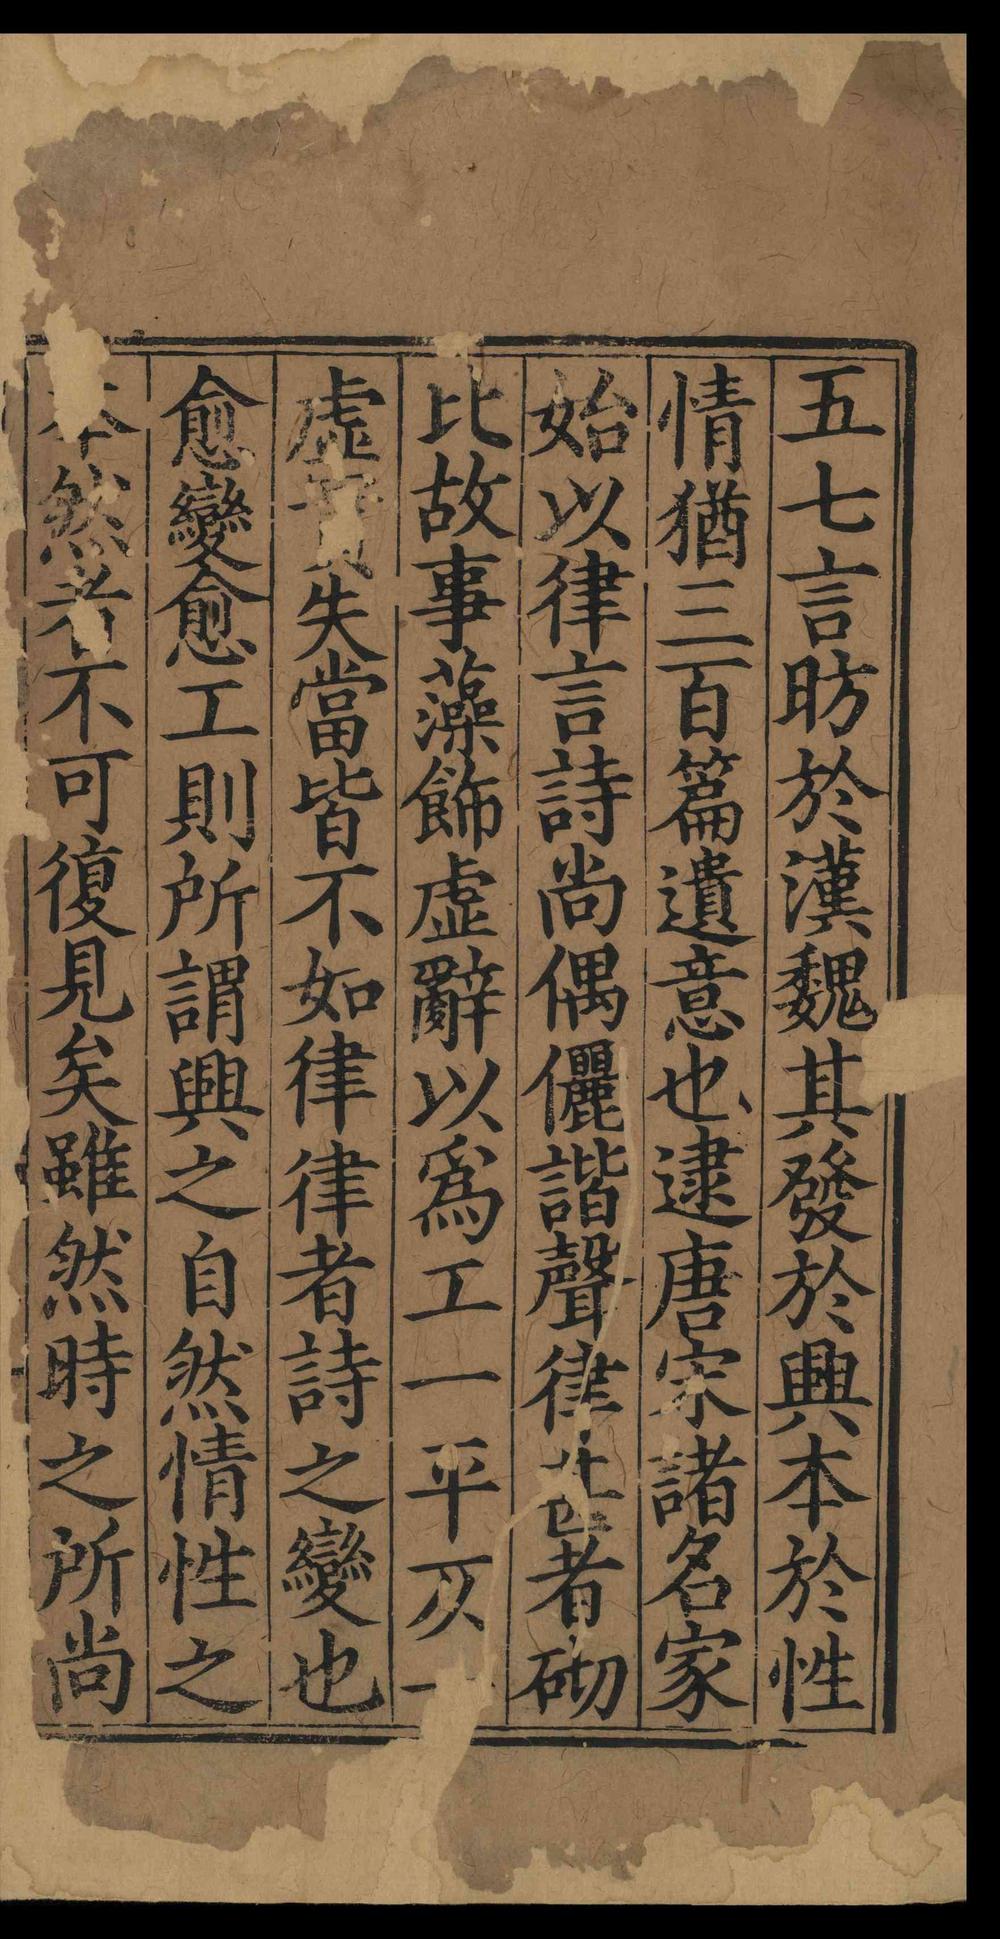 五七言昉於漢魏其發於興本於性
情猶三百篇遺意也逮唐宋諸名家
始以律言詩尚偶儷諧聲律甚者砌
比故事藻飾虛辭以爲工一平仄一
虛實失當皆不如律律者詩之變也
愈變愈工則所謂興之自然情性之
本然者不可復見矣雖然時之所尚